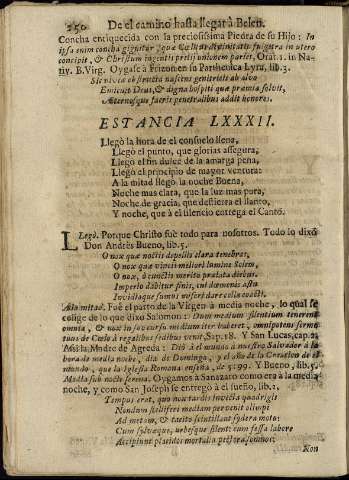 250 De el camino hasta llegar à Belen.
Concha enriquecida con la preciosissima Piedra de su Hijo: In
ipsa enim concha gignitur, quæ Cœlitus Divinitatis fulgura in utero
concipit, & Christum ingentis pretij unionem pariet, Orat. 1. in Na-
tiv. B. Virg. Oygase à en su Parthenica Lyra, lib. 3.
Sic nivea obstricta nascens genitricis ab alvo
Emicuit Deus, & digna hospiti quæ præmia solvit,
Æternosque sacris penetralibus addit honores.
ESTANCIA LXXXII.
Llegò la hora de el consuelo llena,
Llegò el punto, que glorias assegura,
Llegò el fin dulce de la amarga pena,
Llegò el principio de mayor ventura:
A la mitad llegò la noche Buena,
Noche mas clara, que la luz mas pura,
Noche de gracia, que destierra el llanto,
Y noche, que à el silencio entrega el Canto.
Llegò. Porque Christo fuè todo para nosotros. Todo lo dixo
Don Andrès Bueno, lib. 5.
O nox quæ noctis depellis clara tenebras,
O nox quæ vincis meliori lumine Solem,
O nox, ò felicis merito prælata diebus.
Imperio dabitur finis, cui dæmonis astu
Invidiaque sumus miseri dare colla coacti.
A la mitad. Fuè el parto de la Virgen à media noche, lo qual se
colige de lo que dixo Salomon: Dum medium silentium tenerent
omnia, & nox in suo cursu medium iter haberet, omnipotens sermo
tuus de Cœlo à regalibus sedibus venit, Sap. 18. Y San Lucas, cap. 2.
Mas la Madre de Agreda: Diò à el mundo à nuestro Salvador à la
hora de media noche, dia de Domingo, y el año de la Creacion de el
mundo, que la Iglesia Romana enseña, de 5199. Y Bueno, lib. 5.
Media sub nocte serena. Oygamos à Sanazaro como era à la media
noche, y como San Joseph se entregò à el sueño, lib. 2.
Tempus erat, quo nox tardis invecta quadrigis
Nondum stelliferi mediam pervenit olympi
Ad metam, & tacito scintillant sydera motu:
Cum sylvæque, urbesque silent: cum fessa labore
Accipiunt placidos mortalia pectora somnos:
Non